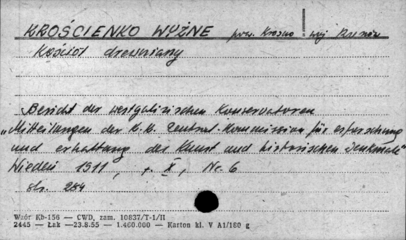 KROŚCIENKO WYŻNE pow. Krosno woj Rzeszów
Kościół drewniany
Bericht der westgalizischen Konservatoren
„Mitteilungen der K.K. Zentral-Kommission für erforschung
und erhaltung der Kunst und historischen Denkmale"
Wiedeń 1911, t. X, Nr. 6
str. 284
Wzór Kb-156 — CWD, zam. 10837/T-1/II
2445 — Łak — 23.8.55 — 1.400.000 — Karton kl. V A1/180 g